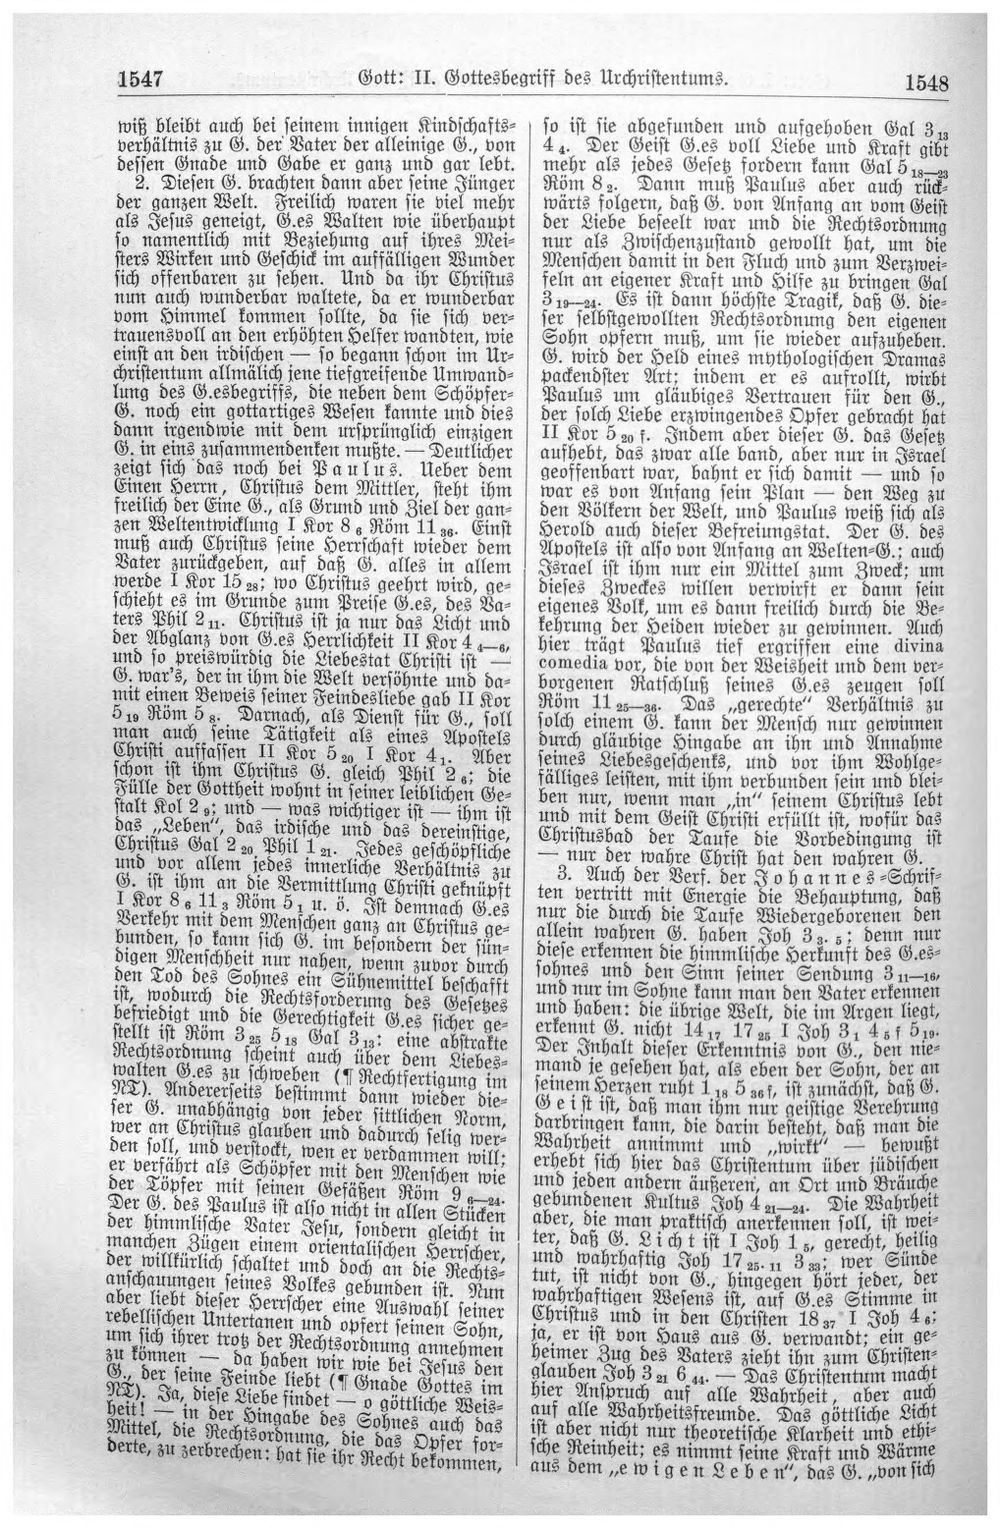 1547
Gott: II. Gottesbegriff des Urchristentums.
1548
wiß bleibt auch bei seinem innigen Kindschafts-
verhältnis zu G. der Vater der alleinige G., von
dessen Gnade und Gabe er ganz und gar lebt.
2. Diesen G. brachten dann aber seine Jünger
der ganzen Welt. Freilich waren sie viel mehr
als Jesus geneigt, G.es Walten wie überhaupt
so namentlich mit Beziehung auf ihres Mei-
sters Wirken und Geschick im auffälligen Wunder
sich offenbaren zu sehen. Und da ihr Christus
nun auch wunderbar waltete, da er wunderbar
vom Himmel kommen sollte, da sie sich ver-
trauensvoll an den erhöhten Helfer wandten, wie
einst an den irdischen — so begann schon im Ur-
christentum allmälich jene tiefgreifende Umwand-
lung des G.esbegriffs, die neben dem Schöpfer-
G. noch ein gottartiges Wesen kannte und dies
dann irgendwie mit dem ursprünglich einzigen
G. in eins zusammendenken mußte. — Deutlicher
zeigt sich das noch bei Paulus. Ueber dem
Einen Herrn, Christus dem Mittler, steht ihm
freilich der Eine G., als Grund und Ziel der gan-
zen Weltentwicklung I Kor 8 6 Röm 11 36. Einst
muß auch Christus seine Herrschaft wieder dem
Vater zurückgeben, auf daß G. alles in allem
werde I Kor 15 28; wo Christus geehrt wird, ge-
schieht es im Grunde zum Preise G.es, des Va-
ters Phil 2 11. Christus ist ja nur das Licht und
der Abglanz von G.es Herrlichkeit II Kor 4 4—6,
und so preiswürdig die Liebestat Christi ist —
G. war's, der in ihm die Welt versöhnte und da-
mit einen Beweis seiner Feindesliebe gab II Kor
5 19 Röm 5 8. Darnach, als Dienst für G., soll
man auch seine Tätigkeit als eines Apostels
Christi auffassen II Kor 5 20 I Kor 4 1. Aber
schon ist ihm Christus G. gleich Phil 2 6; die
Fülle der Gottheit wohnt in seiner leiblichen Ge-
stalt Kol 2 9; und — was wichtiger ist — ihm ist
das „Leben“, das irdische und das dereinstige,
Christus Gal 2 20 Phil 1 21. Jedes geschöpfliche
und vor allem jedes innerliche Verhältnis zu
G. ist ihm an die Vermittlung Christi geknüpft
I Kor 8 6 11 3 Röm 5 1 u. ö. Ist demnach G.es
Verkehr mit dem Menschen ganz an Christus ge-
bunden, so kann sich G. im besondern der sün-
digen Menschheit nur nahen, wenn zuvor durch
den Tod des Sohnes ein Sühnemittel beschafft
ist, wodurch die Rechtsforderung des Gesetzes
befriedigt und die Gerechtigkeit G.es sicher ge-
stellt ist Röm 3 25 5 18 Gal 3 13: eine abstrakte
Rechtsordnung scheint auch über dem Liebes-
walten G.es zu schweben (¶ Rechtfertigung im
NT). Andererseits bestimmt dann wieder die-
ser G. unabhängig von jeder sittlichen Norm,
wer an Christus glauben und dadurch selig wer-
den soll, und verstockt, wen er verdammen will;
er verfährt als Schöpfer mit den Menschen wie
der Töpfer mit seinen Gefäßen Röm 9 6—24.
Der G. des Paulus ist also nicht in allen Stücken
der himmlische Vater Jesu, sondern gleicht in
manchen Zügen einem orientalischen Herrscher,
der willkürlich schaltet und doch an die Rechts-
anschauungen seines Volkes gebunden ist. Nun
aber liebt dieser Herrscher eine Auswahl seiner
rebellischen Untertanen und opfert seinen Sohn,
um sich ihrer trotz der Rechtsordnung annehmen
zu können — da haben wir wie bei Jesus den
G., der seine Feinde liebt (¶ Gnade Gottes im
NT). Ja, diese Liebe findet — o göttliche Weis-
heit! — in der Hingabe des Sohnes auch das
Mittel, die Rechtsordnung, die das Opfer for-
derte, zu zerbrechen: hat sie ihr Recht bekommen,
so ist sie abgefunden und aufgehoben Gal 3 13
4 4. Der Geist G.es voll Liebe und Kraft gibt
mehr als jedes Gesetz fordern kann Gal 5 18—23
Röm 8 2. Dann muß Paulus aber auch rück-
wärts folgern, daß G. von Anfang an vom Geist
der Liebe beseelt war und die Rechtsordnung
nur als Zwischenzustand gewollt hat, um die
Menschen damit in den Fluch und zum Verzwei-
feln an eigener Kraft und Hilfe zu bringen Gal
3 19—24. Es ist dann höchste Tragik, daß G. die-
ser selbstgewollten Rechtsordnung den eigenen
Sohn opfern muß, um sie wieder aufzuheben.
G. wird der Held eines mythologischen Dramas
packendster Art; indem er es aufrollt, wirbt
Paulus um gläubiges Vertrauen für den G.,
der solch Liebe erzwingendes Opfer gebracht hat
II Kor 5 20 f. Indem aber dieser G. das Gesetz
aufhebt, das zwar alle band, aber nur in Israel
geoffenbart war, bahnt er sich damit — und so
war es von Anfang sein Plan — den Weg zu
den Völkern der Welt, und Paulus weiß sich als
Herold auch dieser Befreiungstat. Der G. des
Apostels ist also von Anfang an Welten-G.; auch
Israel ist ihm nur ein Mittel zum Zweck; um
dieses Zweckes willen verwirft er dann sein
eigenes Volk, um es dann freilich durch die Be-
kehrung der Heiden wieder zu gewinnen. Auch
hier trägt Paulus tief ergriffen eine divina
comedia vor, die von der Weisheit und dem ver-
borgenen Ratschluß seines G.es zeugen soll
Röm 11 25—36. Das „gerechte“ Verhältnis zu
solch einem G. kann der Mensch nur gewinnen
durch gläubige Hingabe an ihn und Annahme
seines Liebesgeschenks, und vor ihm Wohlge-
fälliges leisten, mit ihm verbunden sein und blei-
ben nur, wenn man „in“ seinem Christus lebt
und mit dem Geist Christi erfüllt ist, wofür das
Christusbad der Taufe die Vorbedingung ist
— nur der wahre Christ hat den wahren G.
3. Auch der Verf. der Johannes-Schrif-
ten vertritt mit Energie die Behauptung, daß
nur die durch die Taufe Wiedergeborenen den
allein wahren G. haben Joh 3 3. 5; denn nur
diese erkennen die himmlische Herkunft des G.es-
sohnes und den Sinn seiner Sendung 3 11—16,
und nur im Sohne kann man den Vater erkennen
und haben: die übrige Welt, die im Argen liegt,
erkennt G. nicht 14 17 17 25 I Joh 3 1 4 5 f 5 19.
Der Inhalt dieser Erkenntnis von G., den nie-
mand je gesehen hat, als eben der Sohn, der an
seinem Herzen ruht 1 18 5 36 f, ist zunächst, daß G.
Geist ist, daß man ihm nur geistige Verehrung
darbringen kann, die darin besteht, daß man die
Wahrheit annimmt und „wirkt“ — bewußt
erhebt sich hier das Christentum über jüdischen
und jeden andern äußeren, an Ort und Bräuche
gebundenen Kultus Joh 4 21—24. Die Wahrheit
aber, die man praktisch anerkennen soll, ist wei-
ter, daß G. Licht ist I Joh 1 5, gerecht, heilig
und wahrhaftig Joh 17 25. 11 3 33; wer Sünde
tut, ist nicht von G., hingegen hört jeder, der
wahrhaftigen Wesens ist, auf G.es Stimme in
Christus und in den Christen 18 37 I Joh 4 6;
ja, er ist von Haus aus G. verwandt; ein ge-
heimer Zug des Vaters zieht ihn zum Christen-
glauben Joh 3 21 6 44. — Das Christentum macht
hier Anspruch auf alle Wahrheit, aber auch
auf alle Wahrheitsfreunde. Das göttliche Licht
ist aber nicht nur theoretische Klarheit und ethi-
sche Reinheit; es nimmt seine Kraft und Wärme
aus dem „ewigen Leben“, das G. „von sich